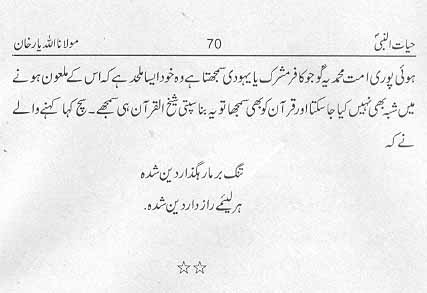 حیات النبیؐ 70 مولانا اللہ یار خان
ہوئی پوری امت محمدیہ کو جو کافر مشرک یا یہودی سمجھتا ہے وہ خود ایسا ملحد ہے کہ اس کے ملعون ہونے
میں شبہ بھی نہیں کیا جا سکتا اور قرآن کو بھی سمجھا تو یہ بناسپتی شیخ القرآن ہی سمجھے۔ سچ کہا کہنے والے
نے کہ
تنگ بر ما رہگذار دین شدہ
ہر لئیمے راز دار دین شدہ.
☆☆